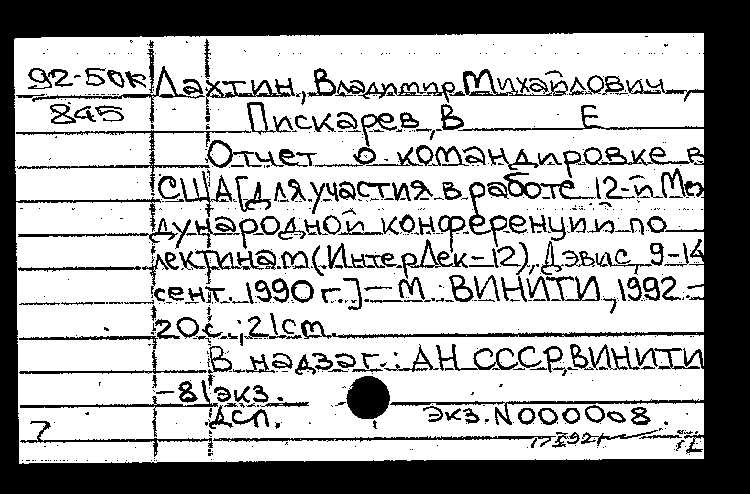 92-50К Лахтин, Владимир Михайлович,
845 Пискарев, В Е
Отчет о командировке в
США [для участия в работе 12-й Меж
дународной конференции по
лектинам (ИнтерЛек-12), Дэвис, 9-14
сент. 1990 г.] - М. ВИНИТИ, 1992 -
20с.; 21см.
В надзаг.: АН СССР, ВИНИТИ
-81 экз.
ДСП. экз. N000008.
7